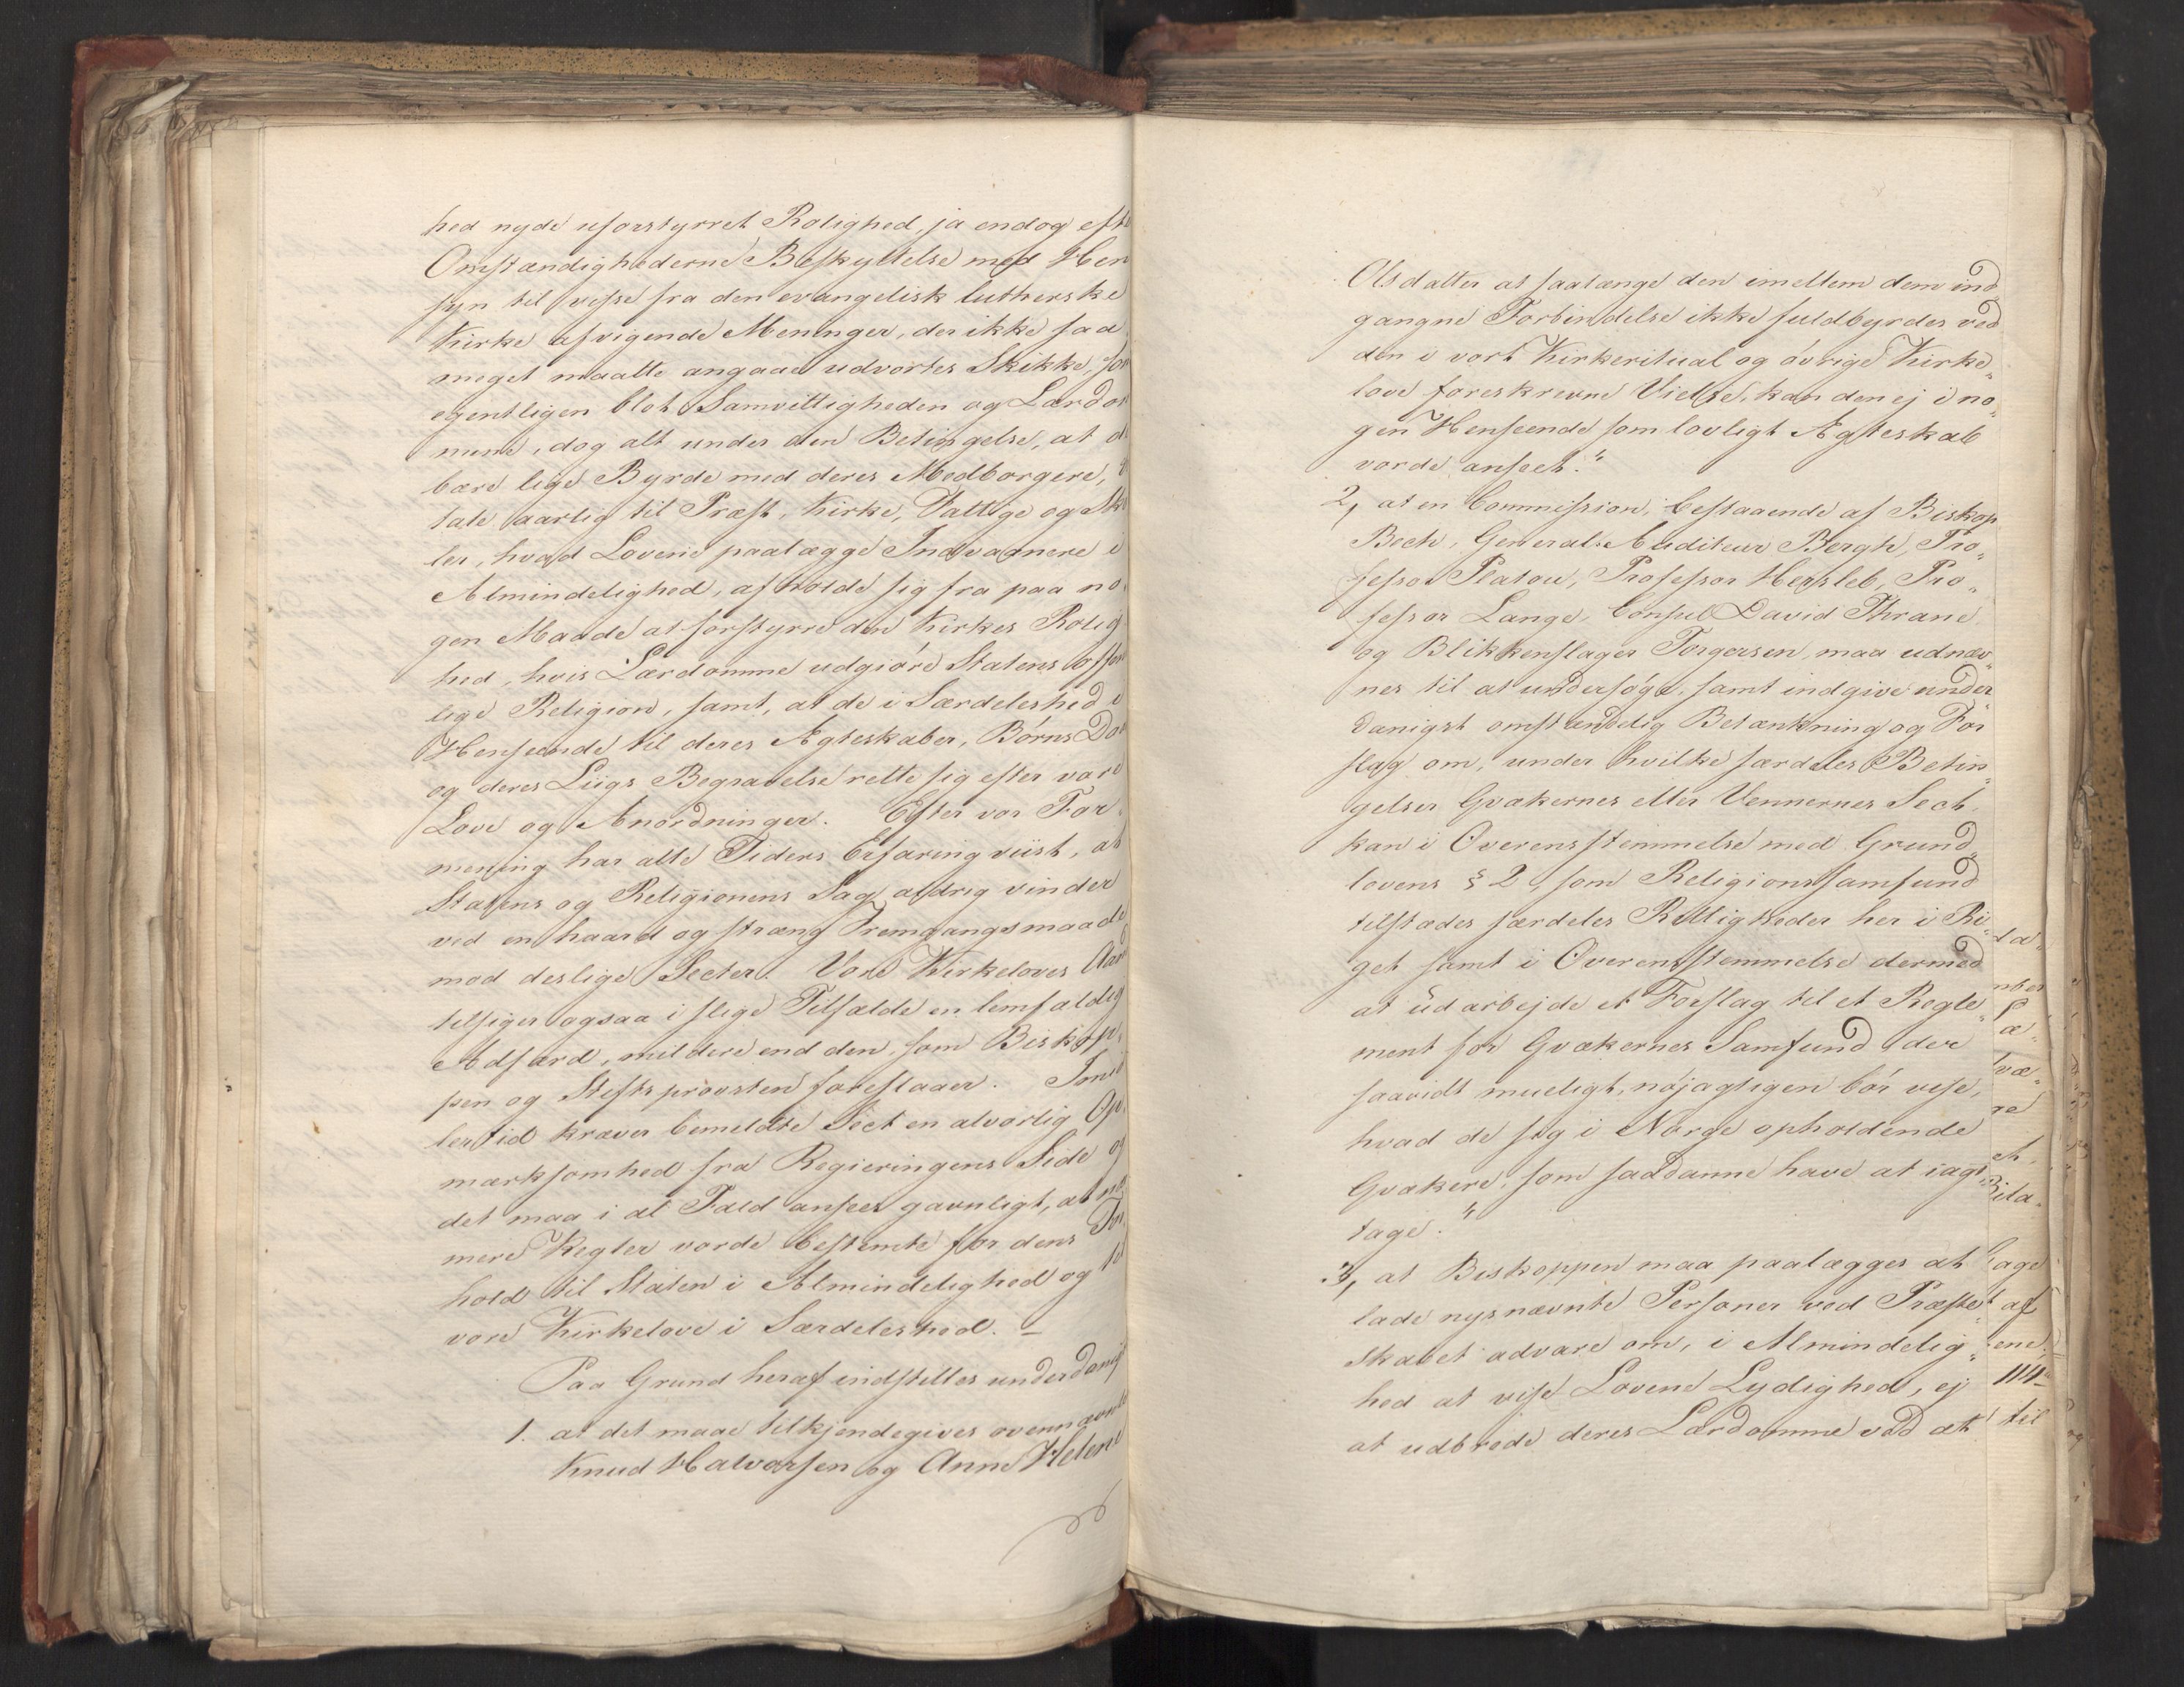 hed nyde uforstyrret Rolighed, ja endog efte
Omstændighederne Beskyttelse med Hen
syn til visse fra den evangelisk lutherske
Kirke afvigende Meninger, der ikke saa
meget maatte angaae udvortes Skikke, som
egentligen blot Samvittigheden og Lærdom
mene, dog alt under den Betingelse, at de
bære lige Byrde med deres Medborgere,
tale aarlig til Præst, Kirke, Fattige og Sko
ler, hvad Lovene paalægge Indvaanere i
Almindelighed, afholde sig fra paa no
gen Maade at forstyrre den Kirkes Rolig
hed, hvis Lærdomme udgiøre Statens offent
lige Religion, samt, at de i Særdeleshed i
Henseende til deres Ægteskaber, Børns Daab
og deres Liigs Begravelse rette sig efter vore
Love og Anordninger. Efter vor For
mening har alle Tiders Erfaring viist, at
Statens og Religionens Sag aldrig vinder
ved en haard og stræng Fremgangsmaade
mod deslige Secter. Vore Kirkeloves Aand
tilsiger ogsaa i slige Tilfælde en lemfældig
Adfærd, mildere end den, som Biskop-
pen og Stiftsprovsten foreslaaer. Imid
lertid kræver bemeldte Sect en alvorlig Op
mærksomhed fra Regieringens Side og
det maa i al Fald ansees gavnligt, at nø
mere Regler vorde bestemte for dens For
hold til Staten i Almindelighed og til
vore Kirkelove i Særdeleshed. –
Paa Grund heraf indstilles underdanigst
1. at det maae tilkjendegives ovennævnte
Knud Halvorsen og Anne Helene
Olsdatter at saalænge den imellem dem ind„
gangne Forbindelse ikke fuldbyrdes ved
den i vort Kirkeritual og øvrige Kirke„
love foreskrevne Vielse, kan den ej i no„
gen Henseende som lovligt Ægteskab
vorde anseet."
2, at en Commission, bestaaende af Biskop
Bech, General-Auditeur Bergh, Pro„
fessor Platou, Professor Hersleb, Pro„
fessor Lange, Consul David Thrane
og Blikkenslager Torgersen, maa udnæv„
nes til at undersøge, samt indgive under„
danigst omstændelig Betænkning og For
slag om, under hvilke særdeles Betin„
gelser Qvækernes eller Vennernes Sect
kan i Overensstemmelse med Grund„
lovens § 2 som Religionssamfund
tilstædes særdeles Rettigheder her i Ri„
get samt i Overensstemmelse dermed
at udarbejde et Forslag til et Regle„
ment for Qvækernes Samfund der
saavidt mueligt, nøjagtigen bør vise,
hvad de sig i Norge opholdende
Qvækere, som saadanne have at iagt„
tage."
3, at Biskoppen maa paalægges at
lade nysnævnte Personer ved Præste„
skabet advare om, i Almindelig„
hed at vise Lovene Lydighed, ej
at udbrede deres Lærdomme ved at